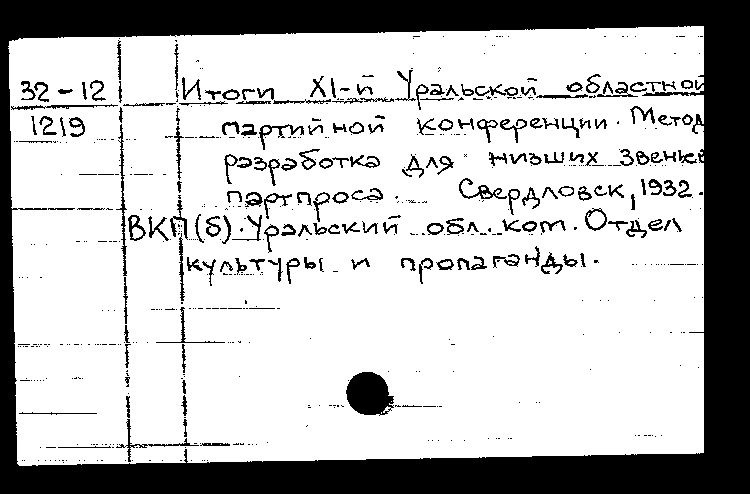 32-12 Итоги XI-й Уральской областной
1219 партийной конференции. Метод.
разработка для низших звеньев
партпроса. Свердловск, 1932.
ВКП(б). Уральский обл. ком. Отдел
культуры и пропаганды.